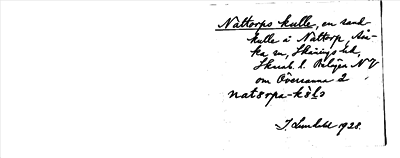 Nattorps kulle, en sand-
kulle i Nattorp,
ka sn, Skånings hd,
Skarab. l. Belägen NV
om Översanna 2
natɜrpa-
J. Lundahl 1928.